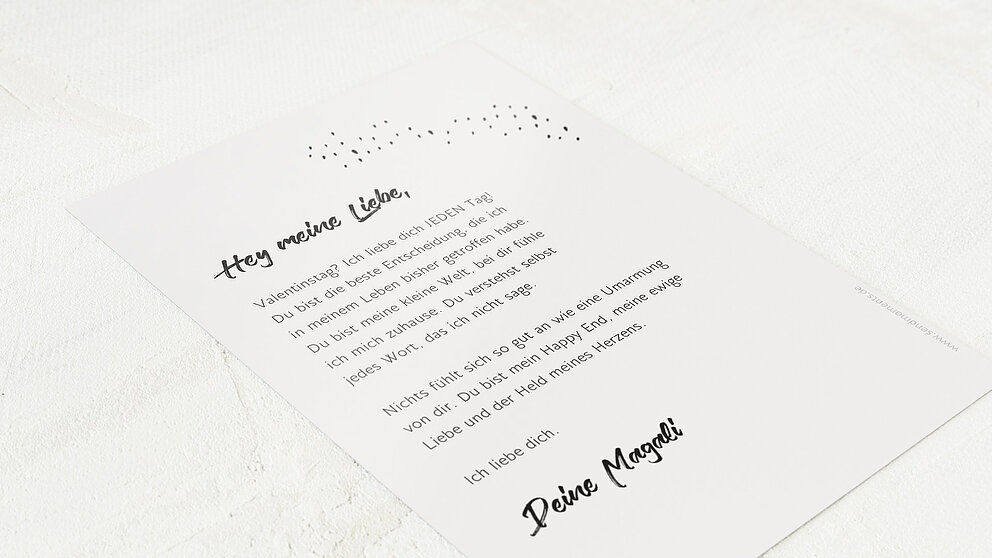 Hey meine Liebe,
Valentinstag? Ich liebe dich JEDEN Tag!
Du bist die beste Entscheidung, die ich
in meinem Leben bisher getroffen habe.
Du bist meine kleine Welt, bei dir fühle
ich mich zuhause. Du verstehst selbst
jedes Wort, das ich nicht sage.
Nichts fühlt sich so gut an wie eine Umarmung
von dir. Du bist mein Happy End, meine ewige
Liebe und der Held meines Herzens.
Ich liebe dich.
Deine Magali
www.sendmoments.de